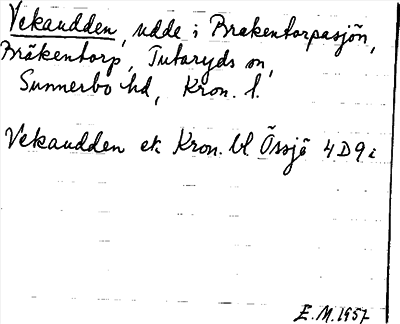 Vekaudden, udde i Brakentorpasjön,
Bräkentorp, Tutaryds sn,
Sunnerbo hd, Kron. l.
Vekaudden ek. Kron. bl Össjö 4D9i
E.M. 1957